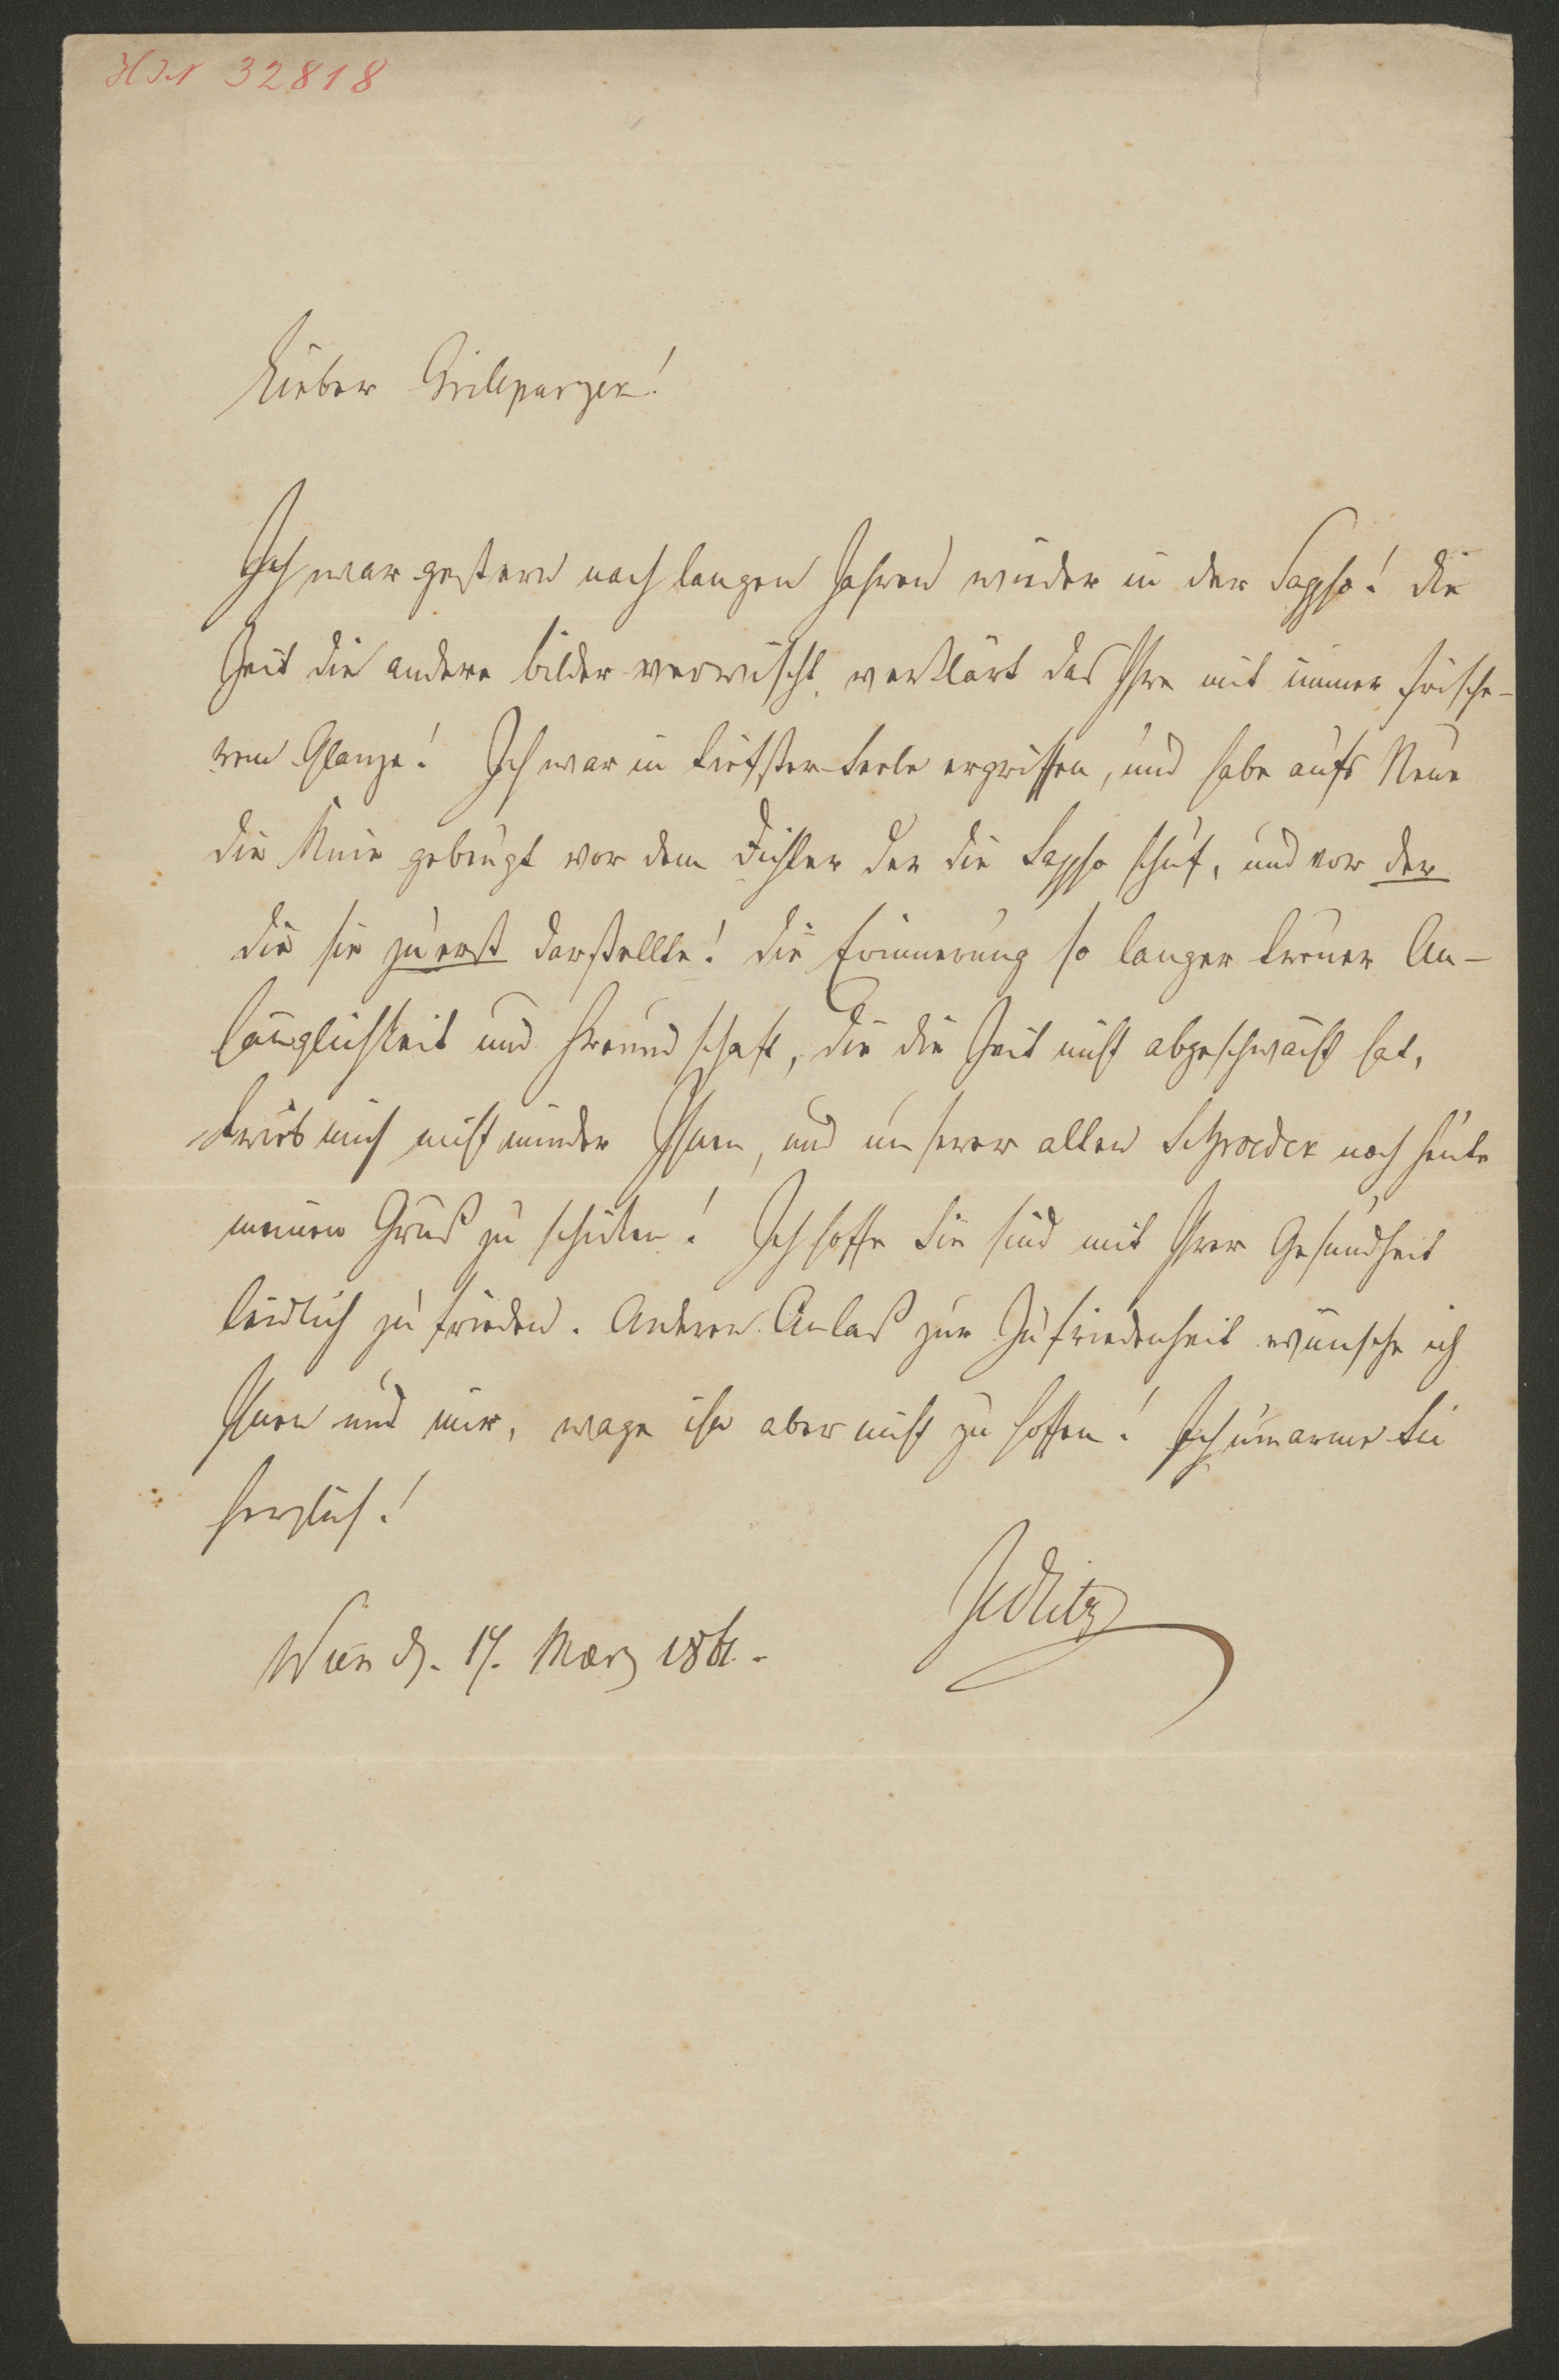 HIN 32818
Lieber Grillparzer!
Ich war gestern nach langen Jahren wieder in der Sappho! die
Zeit die andere bilder verwischt, verklärt das Ihre mit immer frische-
rem Glanze! Ich war in tiefster Seele ergriffen, und habe aufs Neue
die Knie gebeugt vor dem Dichter der die Sappho schuf, und vor der
die sie zuerst darstellte! die Erinnerung so langer treuer An-
hänglichkeit und Freundschaft, die die Zeit nicht abgeschwächt hat,
trieb mich nicht minder Ihnen, und unserer alten Schroeder noch heute
meinen Gruß zu schicken! Ich hoffe Sie sind mit Ihrer Gesundheit
leidlich zufrieden. Anderen Anlaß zur Zufriedenheit wünsche ich
Ihnen und mir, wage ihn aber nicht zu hoffen! Ich umarme Sie
herzlich!
Zedlitz
Wien d. 17. März 1861.